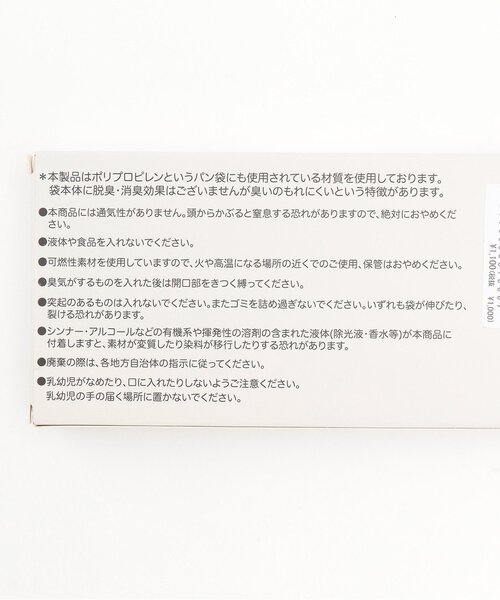 ＊本製品はポリプロピレンというパン袋にも使用されている材質を使用しております。
袋本体に脱臭・消臭効果はございませんが臭いのもれにくいという特徴があります。
●本商品には通気性がありません。頭からかぶると窒息する恐れがありますので、絶対におやめくだ
さい。
●液体や食品を入れないでください。
●可燃性素材を使用していますので、火や高温になる場所の近くでのご使用、保管はおやめください。
●臭気がするものを入れた後は開口部をきつく縛ってください。
●突起のあるものは入れないでください。またゴミを詰め過ぎないでください。いずれも袋が伸びたり、
裂ける恐れがあります。
●シンナー・アルコールなどの有機系や揮発性の溶剤の含まれた液体(除光液・香水等)が本商品に
付着しますと、素材が変質したり染料が移行したりする恐れがあります。
●廃棄の際は、各地方自治体の指示に従ってください。
●乳幼児がなめたり、口に入れたりしないようご注意ください。
乳幼児の手の届く場所に置かないでください。
¥1,100(税抜 ¥1,000)